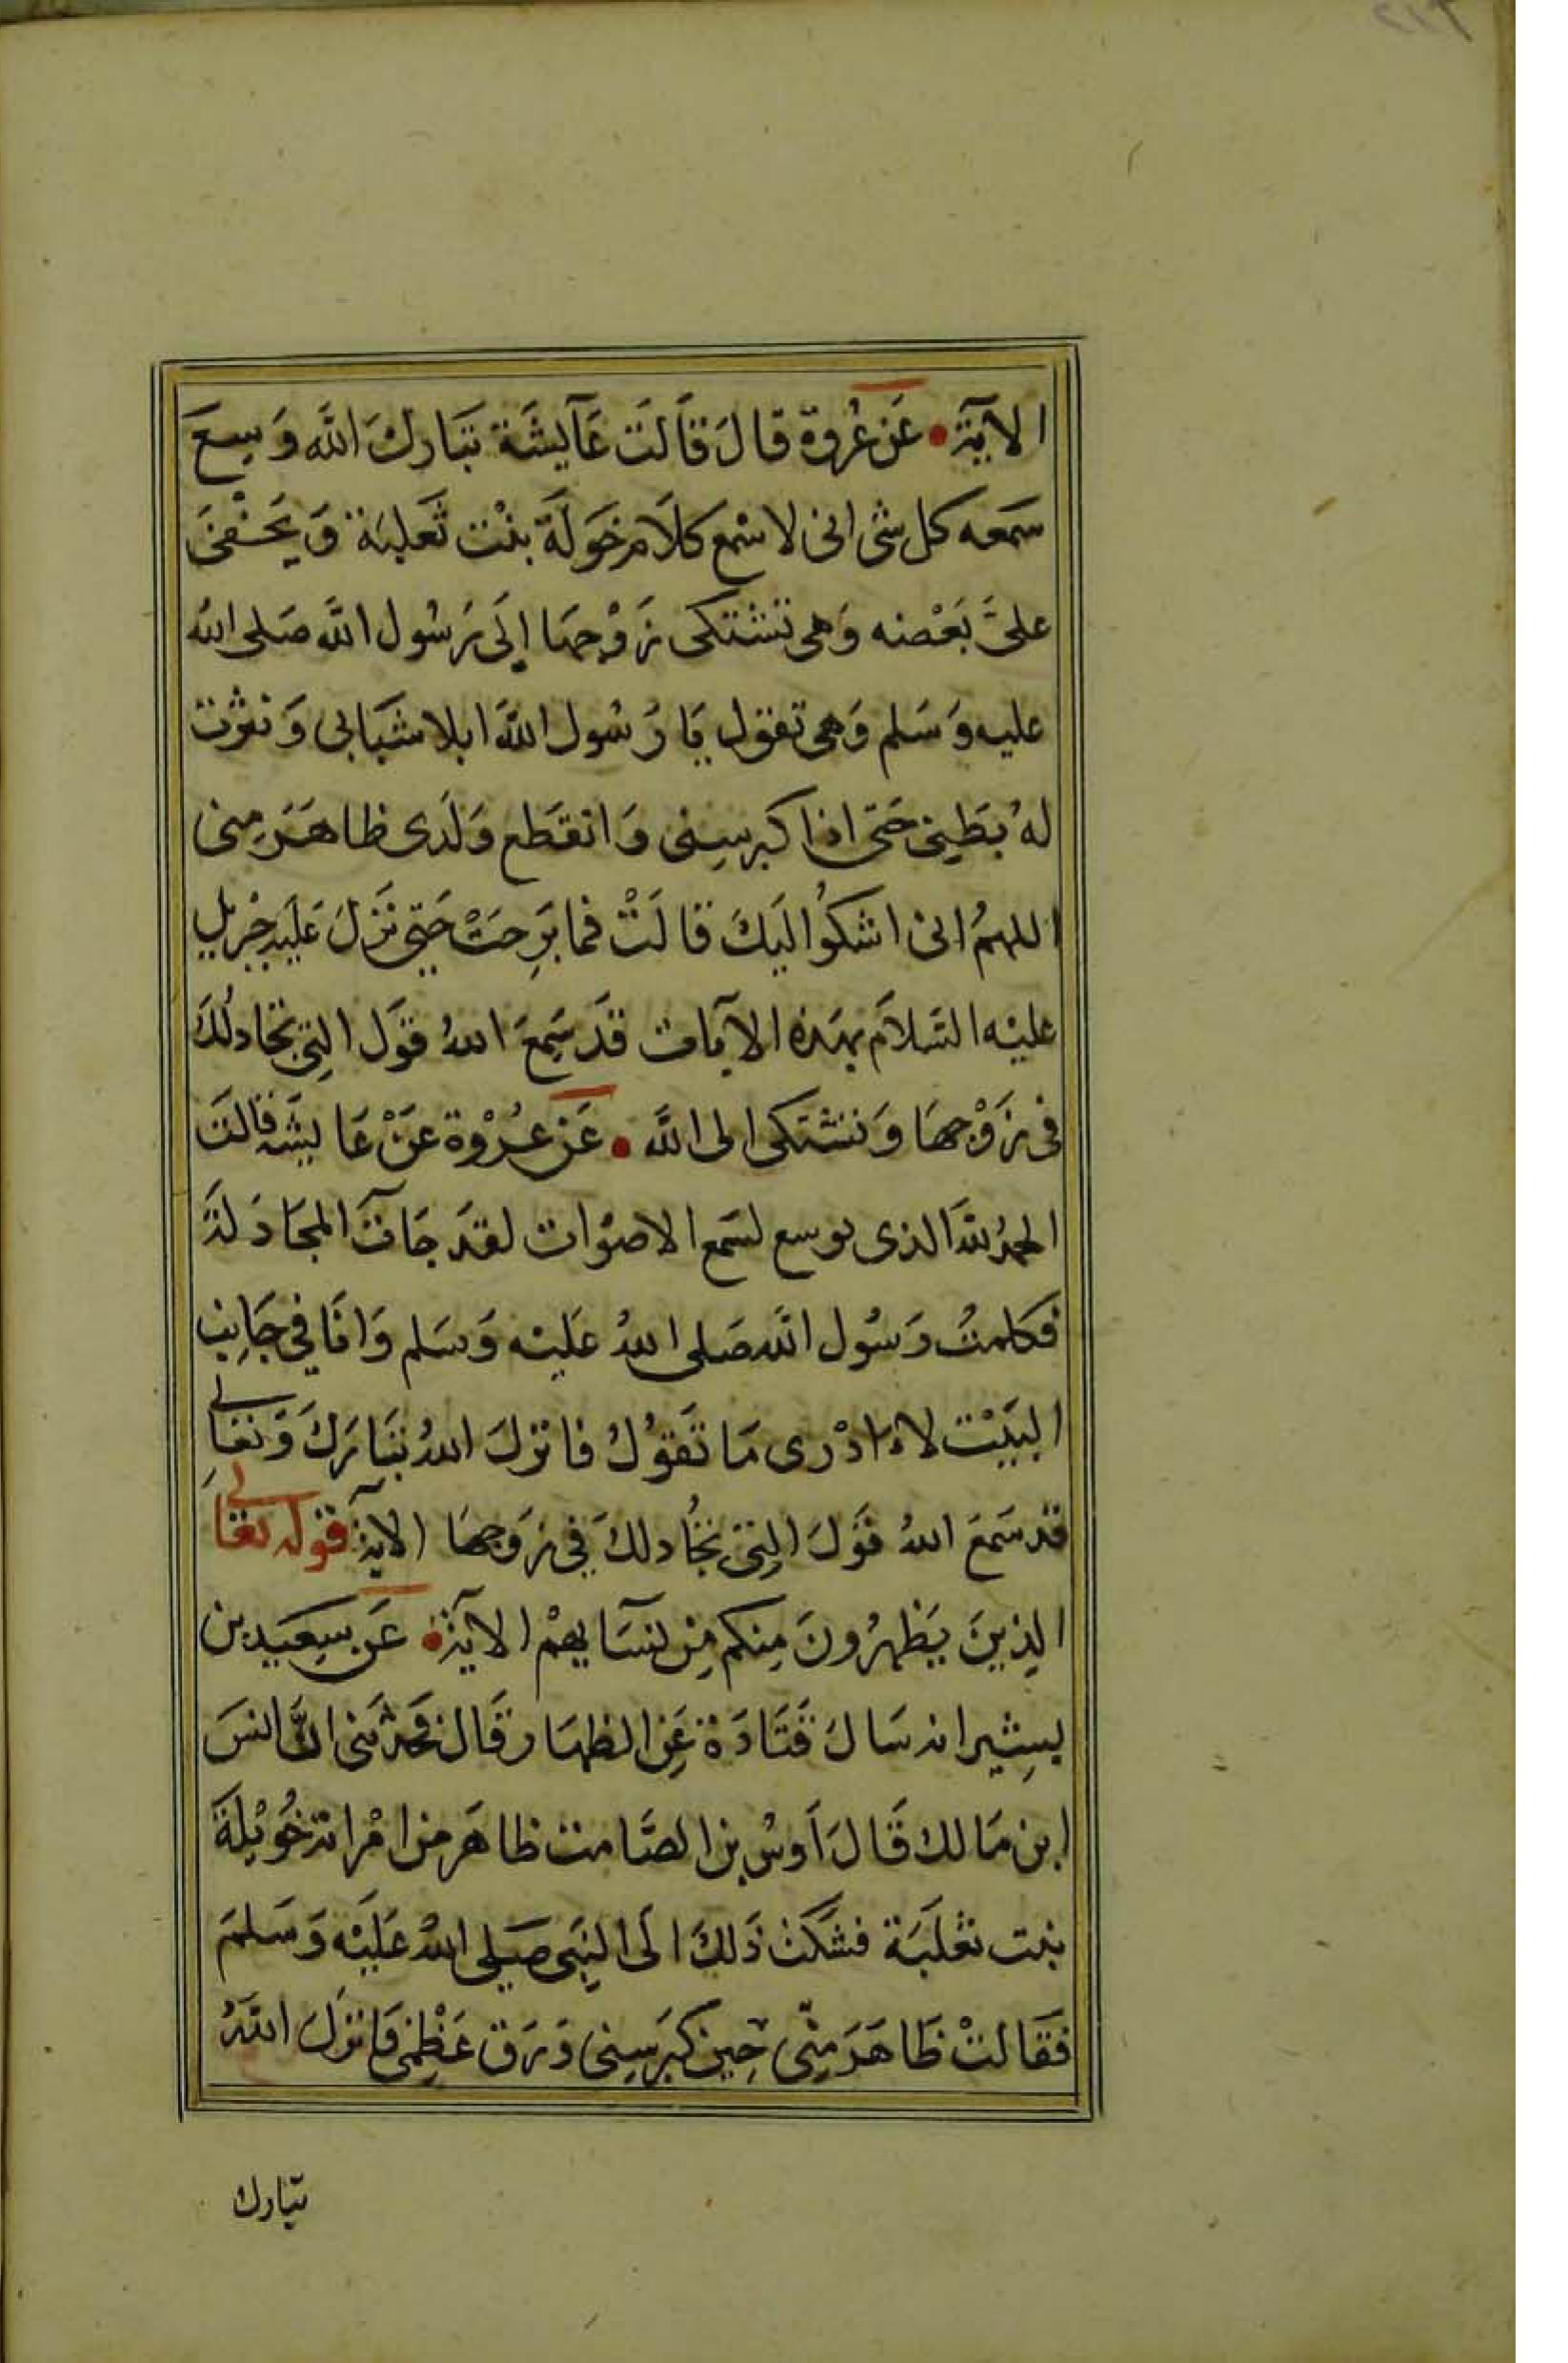 الآيَة • عَن عُروة قالَ قَالَت عَآيشَة تَبَاركَ اللَّه وَسِعَ
سَمعه كل شى انى لا سْمع كلاَم خَولَة بنْت ثَعلبَة وَيَخْفَى
علىَّ بَعْضه وَهى تشتكى زَوْجهَا إلَى رَسُول اللَّه صَلى الله
عليه وَسَلم وَهى تقول يَا رَسُول اللَّه ابلا شبَابى وَنثرت
لهُ بَطنِى حَتى اذا كبر سِنى وَانقَطع وَلَدى ظاهَرَ مِنى
اللهمُ انى اشكوُا اليَكَ قالَتْ فما بَرِحَتْ حَتِى نَزلَ عَلَيه جِبْريل
عليْه السَلاَم بهَذه الآيات قَد سَمِعَ اللهُ قَول التِى تجَادلُكَ
فى زَوْجهَا وَتشتكى الى اللَّه • عَن عُرْوة عَنْ عَايشَه قالت
الحمدُ للهَ الذى توسع لسَمع الاصْوَات لقدَ جَاتَ المجَادَلَة
فكلمتُ رَسُول اللَّه صَلى اللهُ عَليْه وَسَلم وَانَا فِي جَانِب
البَيْت لا ادْرى مَا تَقوُلُ فانزلَ اللهُ تبَارَكَ وَتعَالى
قد سَمعَ اللهُ قَولَ التِى تجُادلكَ فِي زَوجهَا الآية قوله تعَالى
الذِينَ يَظهرُونَ مِنكم مِن نسَآيهمْ الآيَة • عَن سَعِيد بن
بِشِير انه سَالَ قَتَادَة عَنِ الظهَار قَال فحَدثنى انَّ انسَ
ابن مَالك قَالَ اَوسُ بن الصَّامت ظاهَر من امْراته خُوَيْلَة
بنت ثعْلَبَة فشكَت ذَلكَ الَى النِبَى صَلى اللهُ عَلَيْه وَسَلمَ
فقَالتْ ظَاهَرَ مِنّى حِين كبَر سِنى وَرَق عَظْمِى فاَنزلَ اللَّهُ
تبارك